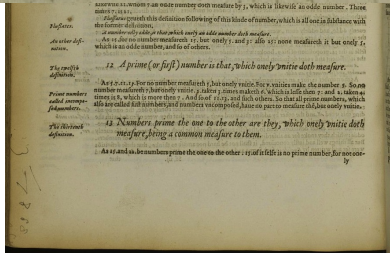 likewise 21. whom 7 an odde number doth measure by 3, which is likewise an odde number. Three
times 7. is 21.
Flussates.
Flussates geueth this definition following of this kinde of number, which is all one in substance with
the former definition,
An other defi-
nition.
A number odly odde is that which onely an odde number doth measure.
As 15. for no number measureth 15. but onely 5. and 3: also 25: none measureth it but onely 5,
which is an odde number, and so of others.
The twelfth
definition.
12 A prime (or first) number is that, which onely vnitie doth measure.
Prime numbers
called incompo-
sed numbers.
As 5.7.11.13. For no number measureth 5, but onely vnitie. For v. vnities make the number 5. So no
number measureth 7, but onely vnitie. 2. taken 3. times maketh 6. which is lesse then 7: and 2. taken 4.
times is 8, which is more then 7. And so of 11.13. and such others. So that all prime numbers, which
also are called first numbers, and numbers vncomposed, haue no part to measure thē, but onely vnitie.
The thirtenth
definition.
13 Numbers prime the one to the other are they, which onely vnitie doth
measure, being a common measure to them.
As 15. and 22. be numbers prime the one to the other: 15. of it selfe is no prime number, for not one-
ly